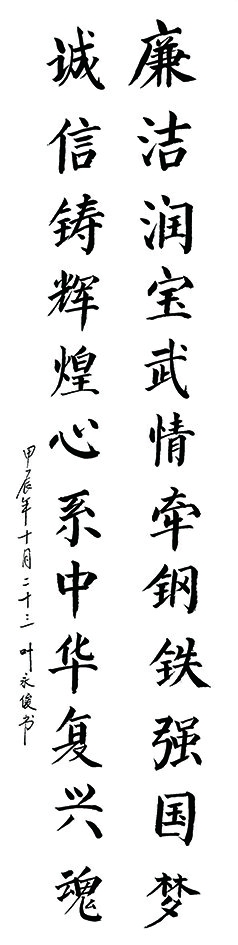 廉洁润宝武情牵钢铁强国梦
诚信铸辉煌心系中华复兴魂
甲辰年十月二十三叶永俊书